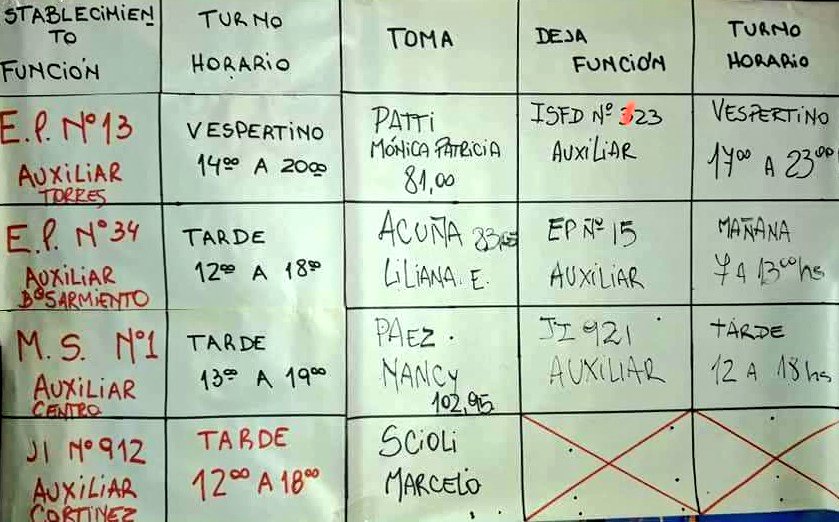 STABLECIMIEN
TO
FUNCIÓN
TURNO
HORARIO
TOMA
DEJA
FUNCIÓN
TURNO
HORARIO
E.P. Nº 13
AUXILIAR
TORRES
VESPERTINO
14⁰⁰ A 20⁰⁰
PATTI
MÓNICA PATRICIA
81,00
ISFD Nº 23
AUXILIAR
VESPERTINO
17⁰⁰ A 23⁰⁰
E.P. Nº 34
AUXILIAR
Bº SARMIENTO
TARDE
12⁰⁰ A 18⁰⁰
ACUÑA
LILIANA. E.
EP Nº 15
AUXILIAR
MAÑANA
7 A 13⁰⁰ hs
M. S. Nº 1
AUXILIAR
CENTRO
TARDE
13⁰⁰ A 19⁰⁰
PAEZ.
NANCY
102,95
JI 921
AUXILIAR
TARDE
12 A 18 hs
JI Nº 912
AUXILIAR
CORTINEZ
TARDE
12⁰⁰ A 18⁰⁰
SCIOLI
MARCELO